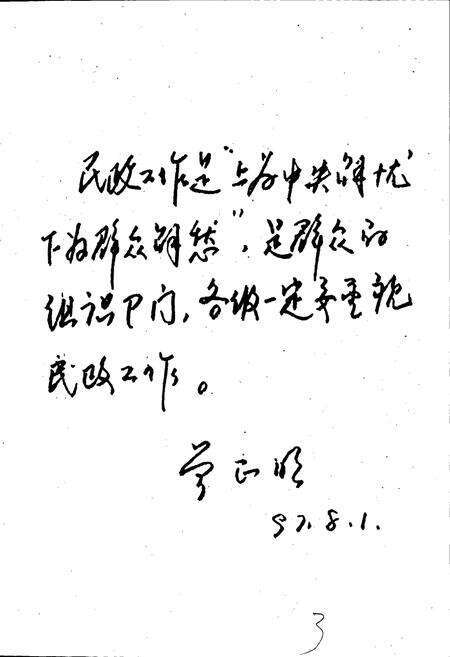 民政工作是“上为中央解忧
下为群众解愁”,是群众的
组识卩门,各级一定要重视
民政工作。
曾正明
97.8.1.
3